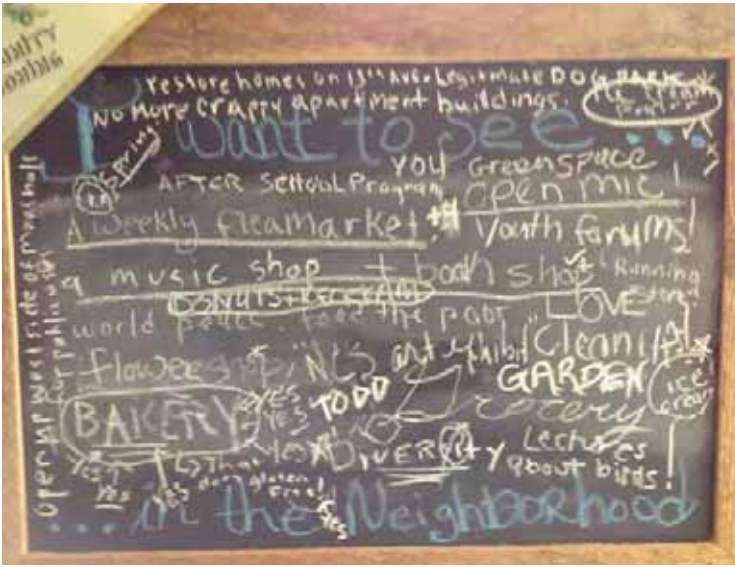 restore homes on 13th Ave. Legitimate DOG PARK
No More crappy apartment buildings.
I want to see ...
Spring
YOU Greenspace
AFTER School Program
open mic!
A weekly fleamarket!
Youth forums!
a music shop + book shop
Running store
DONUTS + ICECREAM
LOVE
world peace. feed the poor
art exhibit
Cleanliness
flower shop
GARDEN
ice cream
BAKERY
YES
YES
YES
TODD
Grocery
DIVERSITY
Lectures about birds!
YES
YES
YES
That does gluten free!
Yes
open up west side of marshall for publication
... in the Neighborhood